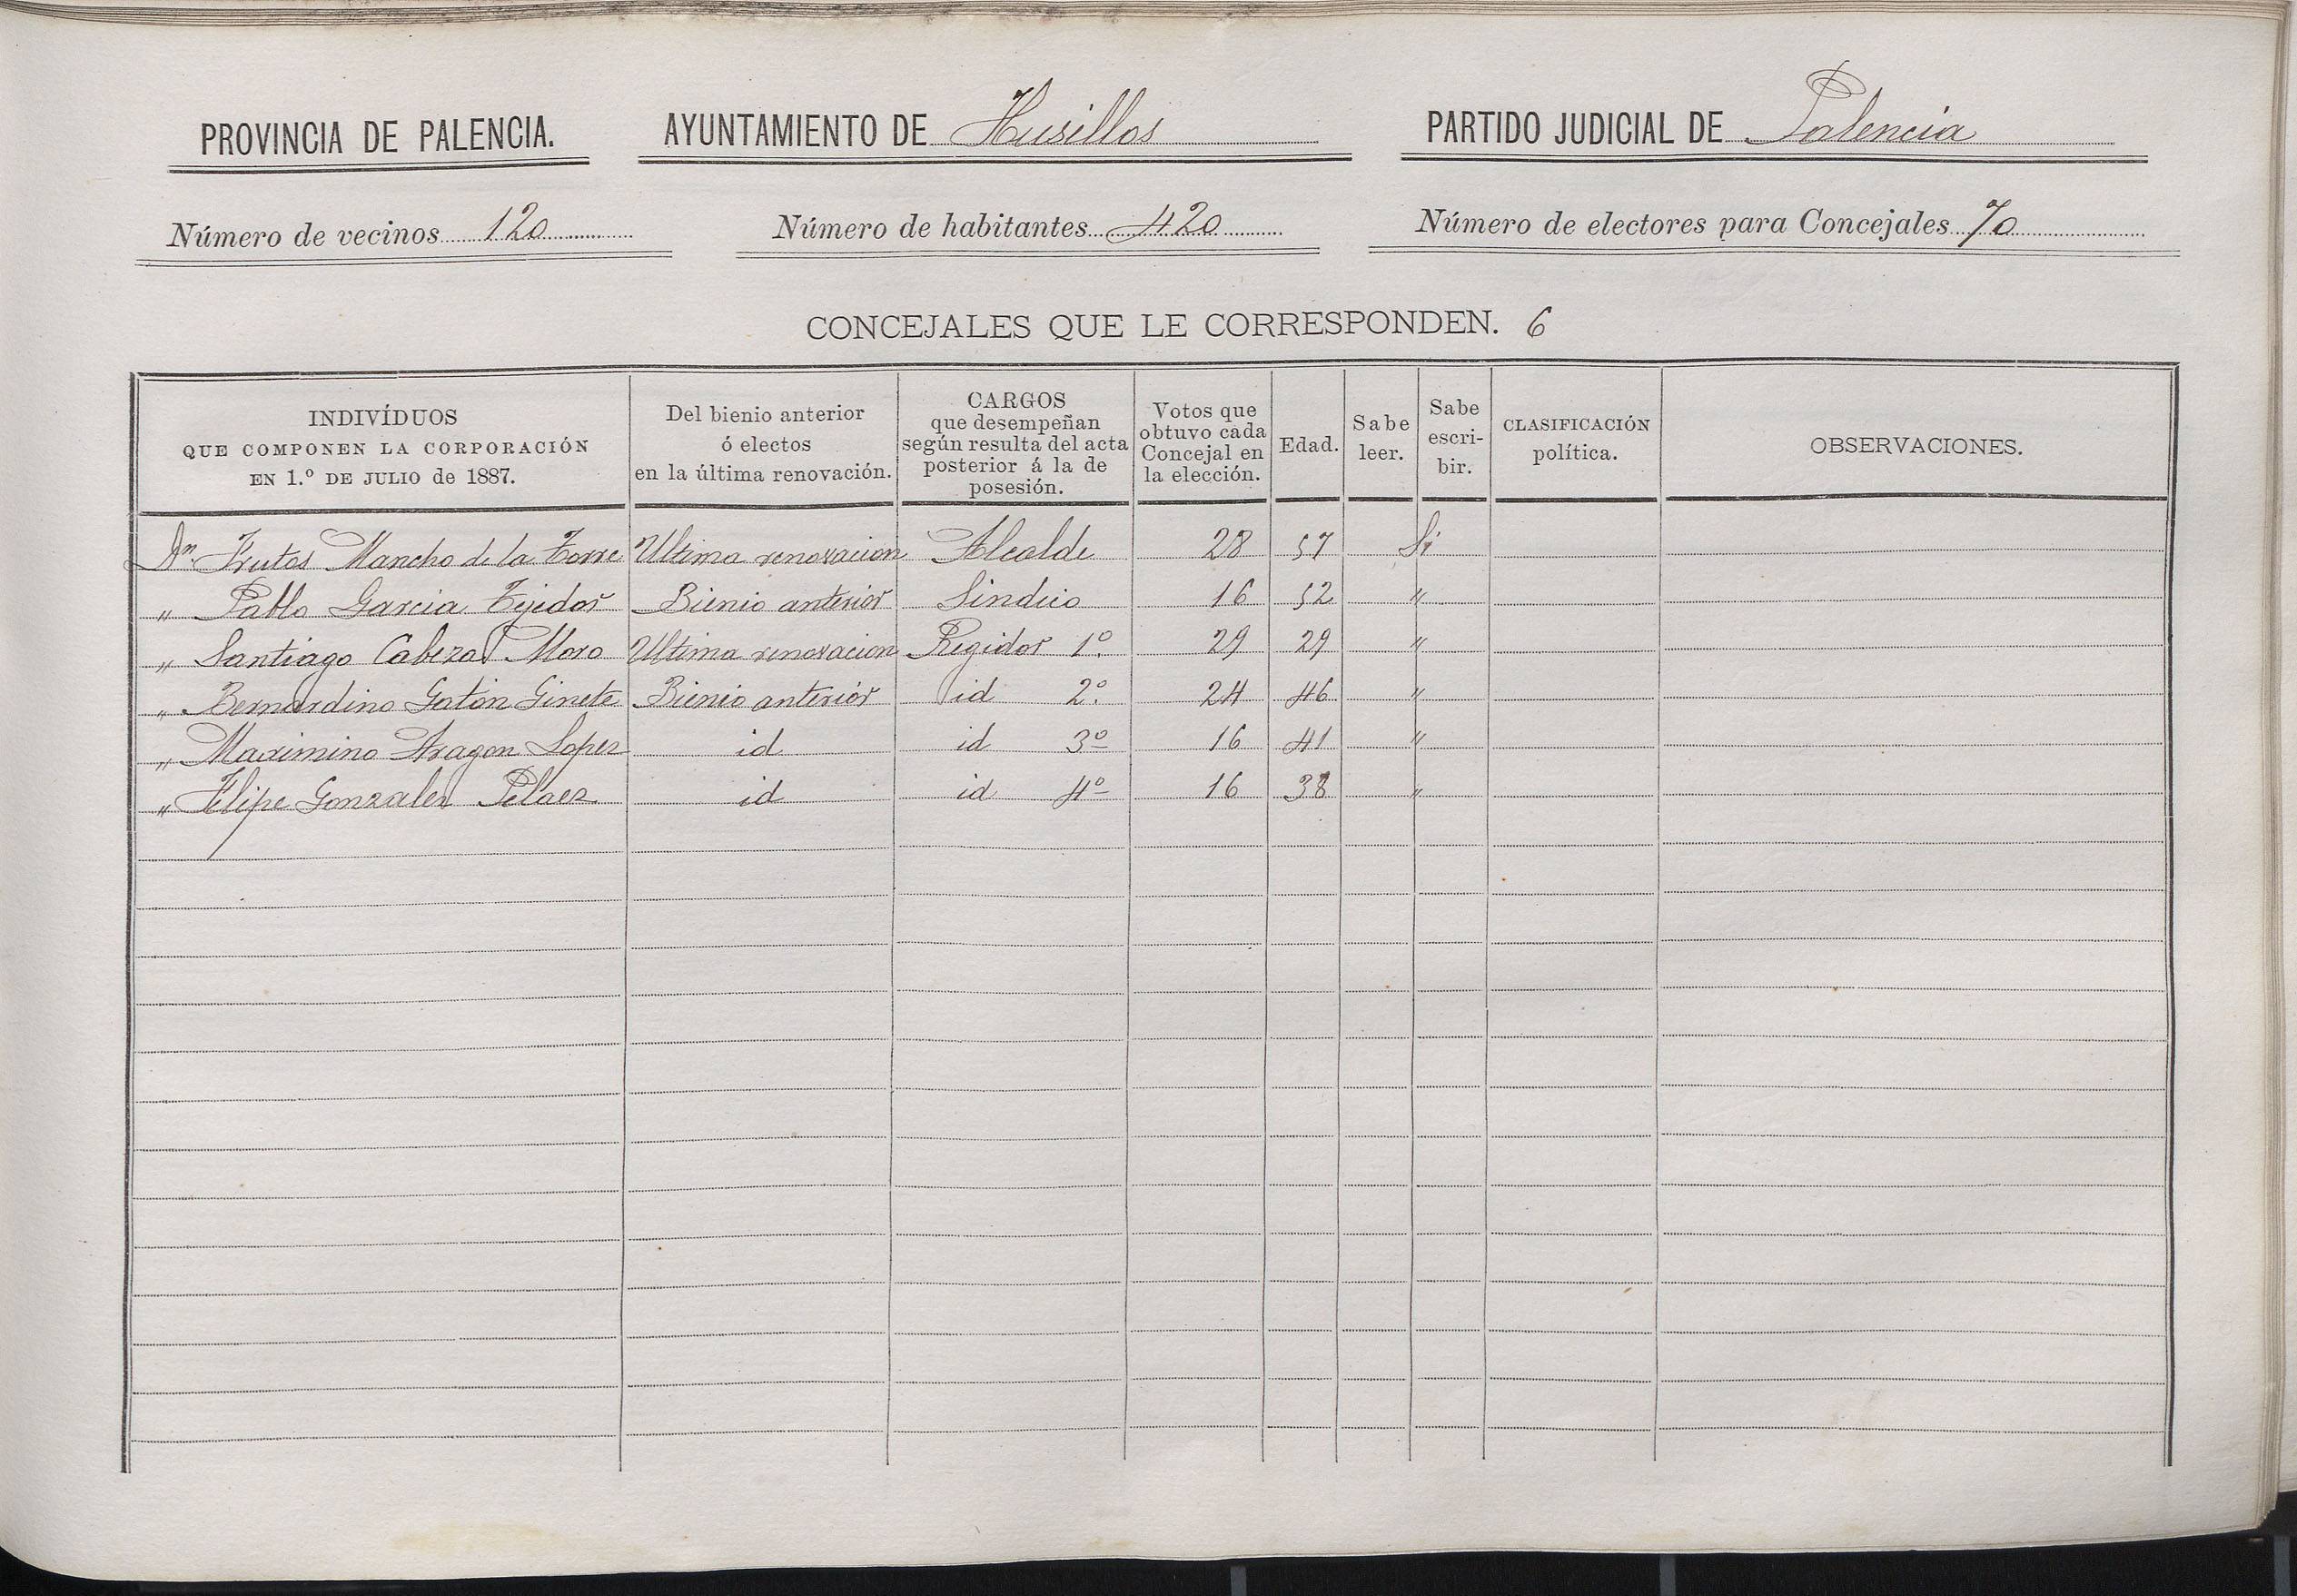 PROVINCIA DE PALENCIA. AYUNTAMIENTO DE Husillos PARTIDO JUDICIAL DE Palencia
Número de vecinos 120 Número de habitantes 420 Número de electores para Concejales 70
CONCEJALES QUE LE CORRESPONDEN. 6
INDIVÍDUOS
QUE COMPONEN LA CORPORACIÓN
EN 1.º DE JULIO de 1887.
Del bienio anterior
ó electos
en la última renovación.
CARGOS
que desempeñan
según resulta del acta
posterior á la de
posesión.
Votos que
obtuvo cada
Concejal en
la elección.
Edad.
Sabe
leer.
Sabe
escri-
bir.
CLASIFICACIÓN
política.
OBSERVACIONES.
Dn. Frutos Mancho de la Torre Ultima renovacion Alcalde 28 57 Si
" Pablo Garcia Tejedor Bienio anterior Sindico 16 52 "
" Santiago Cabezal Moro Ultima renovacion Regidor 1º. 29 29 "
" Bernardino Gatón Ginete Bienio anterior id 2º. 24 46 "
" Maximino Aragon Lopez id id 3º 16 41 "
" Felipe Gonzalez Pelaez id id 4º 16 38 "